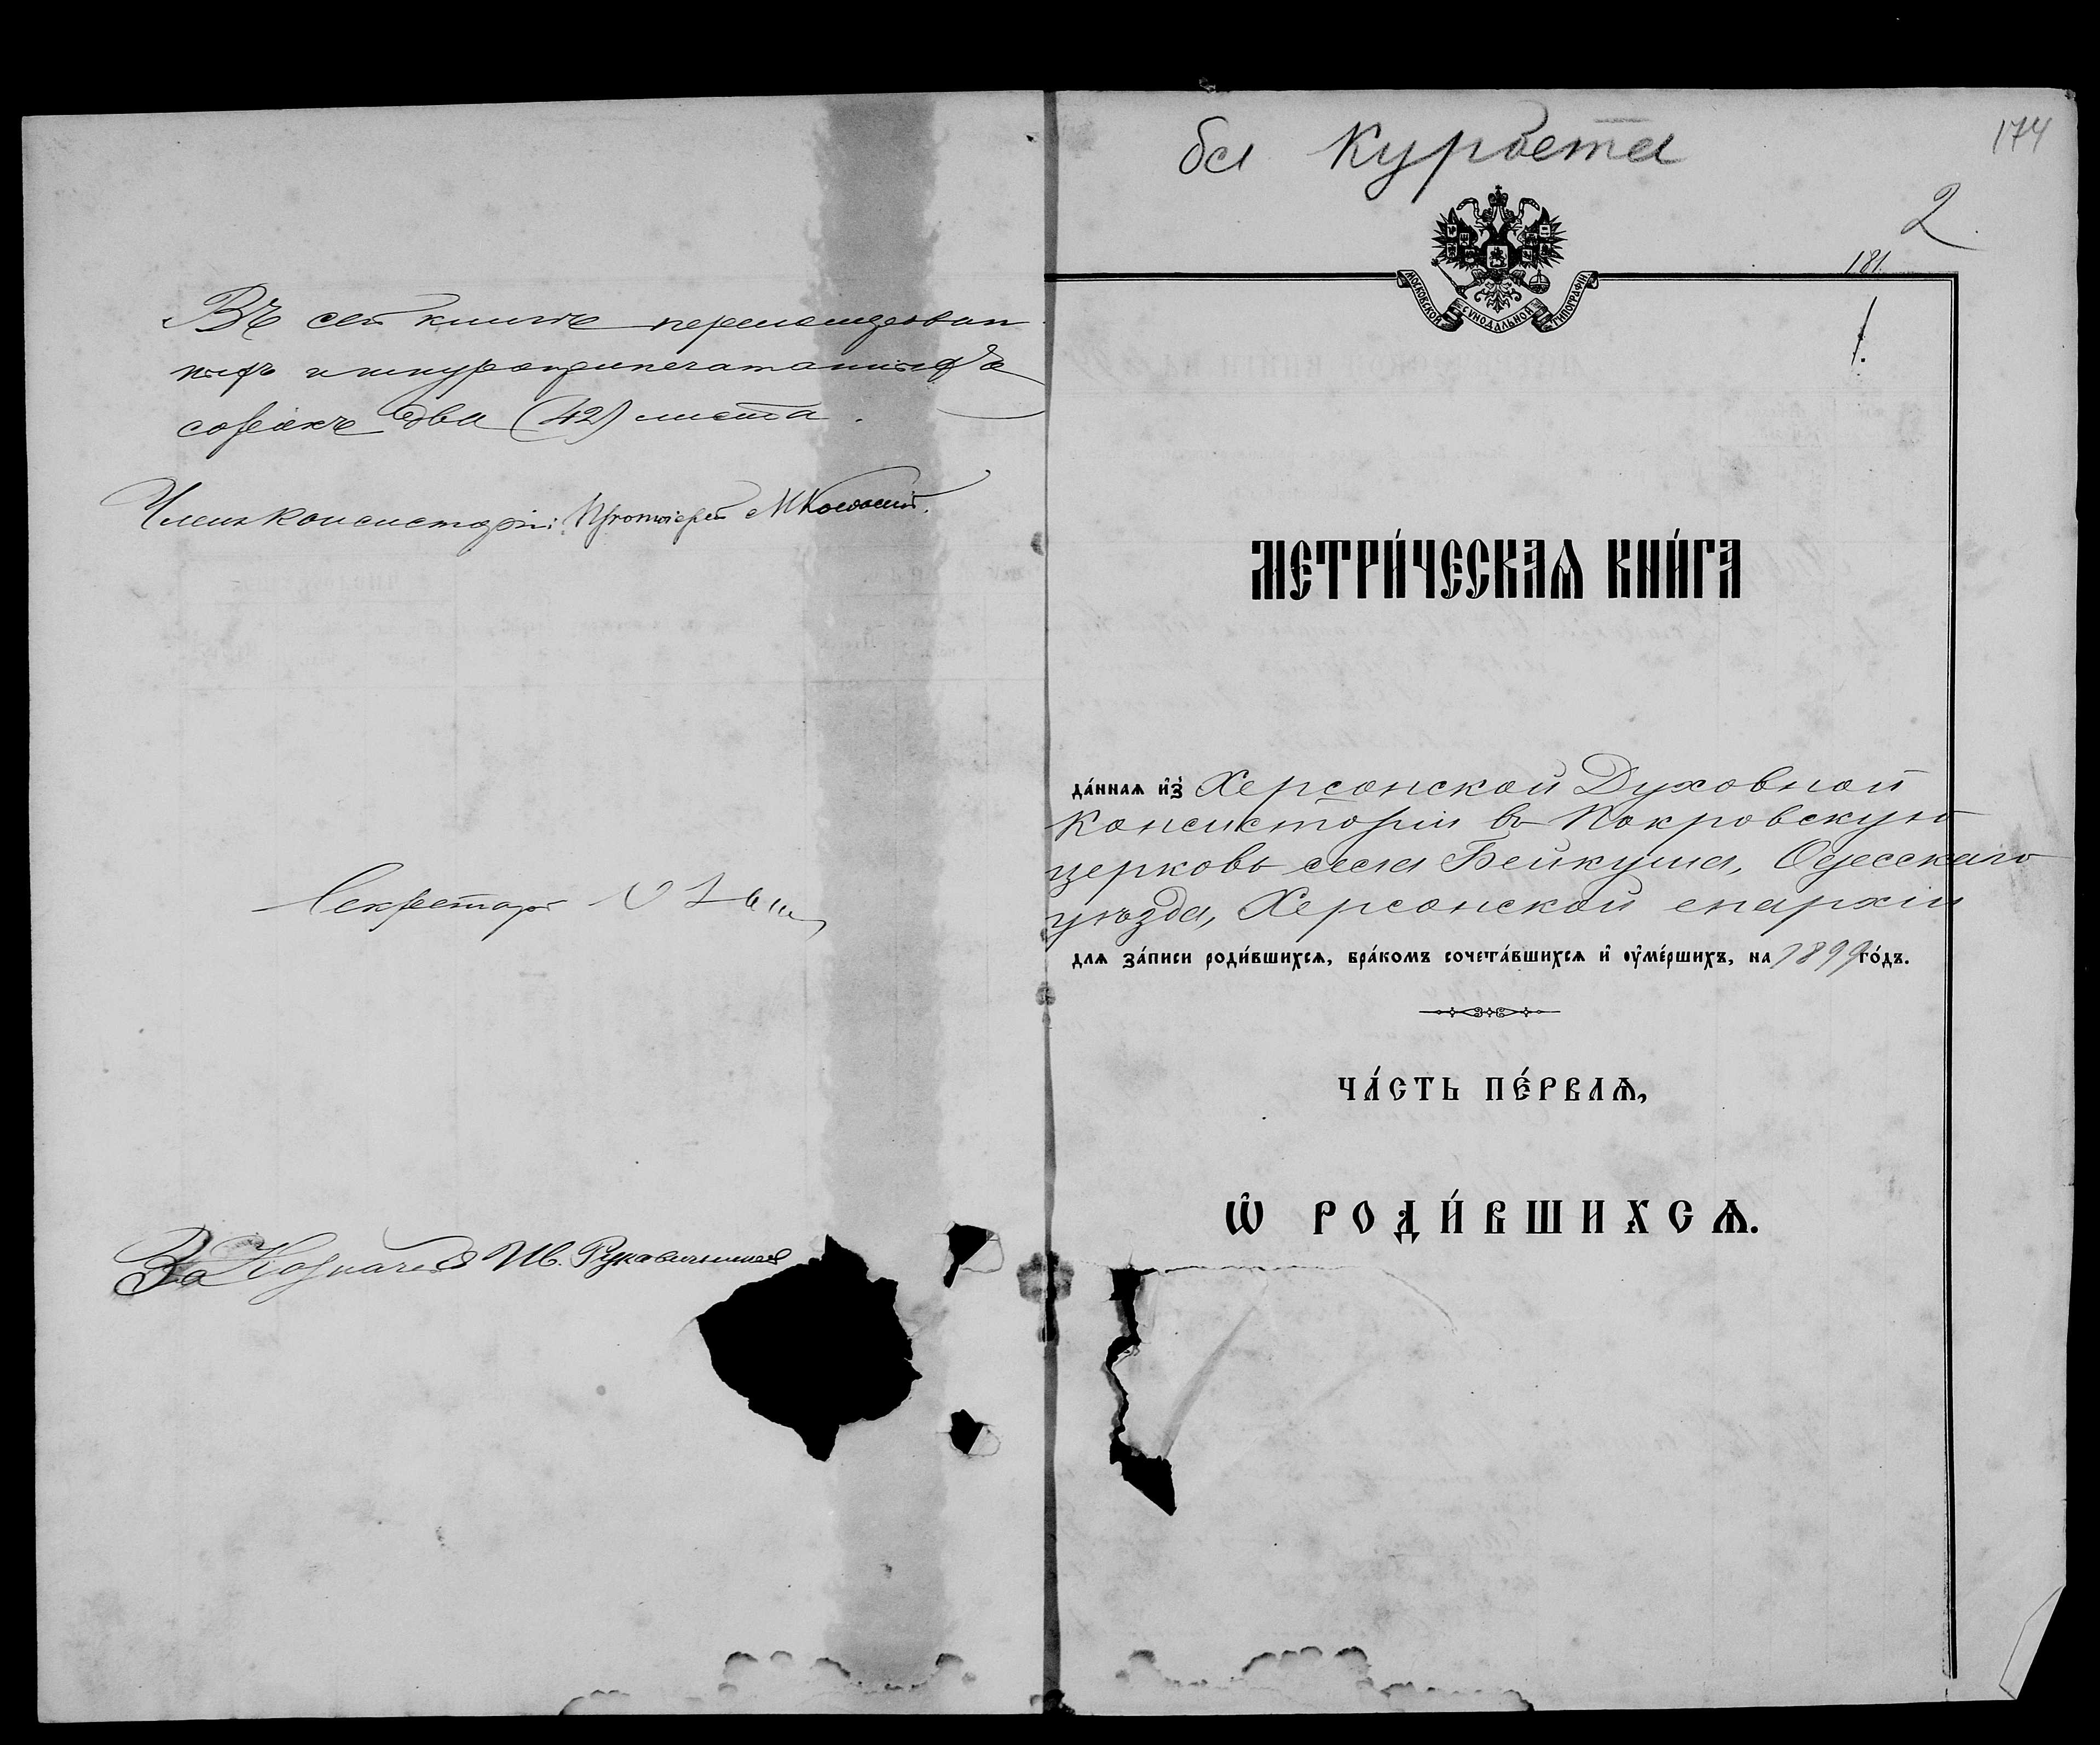 Въ сей книгѣ перенумерован
ныхъ и шнуроприпечатанныхъ
сорокъ два (42) листа.
Членъ Консисторіи: Протоіерей М
Секретарь
За Казначея Ив. Рукавишников
174
2
181.
1.
МОСКОВСКОЙ СѴНОДАЛЬНОЙ ТИПОГРАФІИ
МЕТРИ́ЧЕСКАѦ КНИ́ГА
да́ннаѧ и҆з̾ Херсонской Духовной
Консисторіи въ Покровскую
церковь села Бейкуша, Одесскаго
уѣзда, Херсонской епархіи
для за́писи роди́вшихсѧ, бра́комъ сочета́вшихсѧ и҆ ᲂу҆ме́ршихъ, на 1899 го́дъ.
ЧА́СТЬ ПЕ́РВАѦ,
Ѡ҆ РОДИ́ВШИХСѦ.